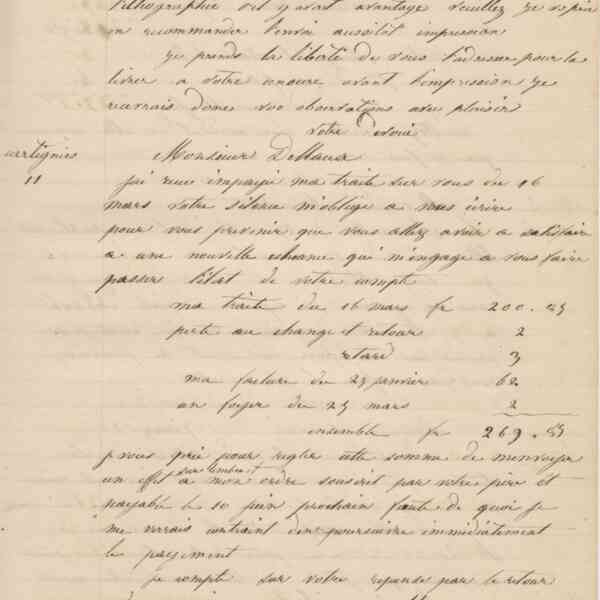 lithographie s'il y avait avantage veuillez je vous prie
en recommander l'envoi aussitôt impression
je prends la liberté de vous l'adresser pour le
livrer a votre censure avant l'impression je
recevrais donc vos observations avec plaisir
votre dévoué
Monsieur
11
j'ai reçu impayé ma traite sur vous du 16
mars votre silence m'oblige a vous écrire
pour vous prévenir que vous allez avoir a satisfaire
a une nouvelle qui m'engage a vous faire
passer l'état de votre compte
ma traite du 16 mars fr 200.85
perte au change et retour 2
retard 3
ma facture du 23 janvier 62
un foyer du 25 mars 2
ensemble fr 269.85
je vous prie pour régler cette somme de m'envoyer
un effet a mon ordre souscrit par votre père et
payable le 10 juin prochain faute de quoi je
me verrais contraint d'en poursuivre immédiatement
le payement
je compte sur votre réponse par le retour